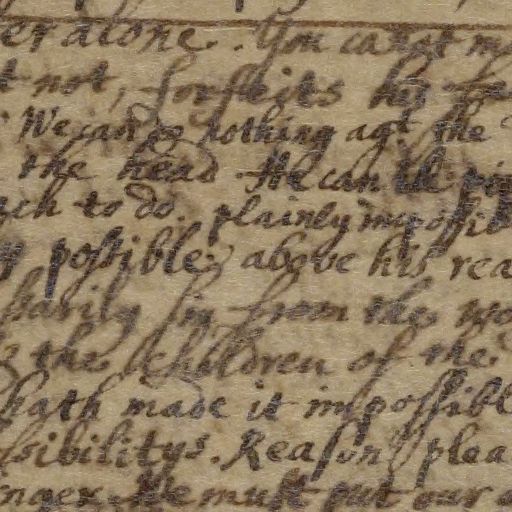 er alone. You canot m
t not, forfeits his
We can do nothing agt. the
the head He can
ch to do. plainly impossib
y possible; above his rea
sarily sin from the wo
the children of the
hath made it impossible
ssibilitys. Reason plea
nger. We must put our